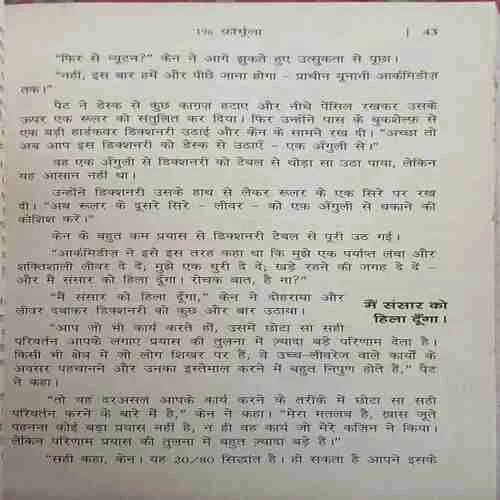 1% फ़ॉर्मूला | 43
"फिर से न्यूटन?" केन ने आगे झुकते हुए उत्सुकता से पूछा।
"नहीं, इस बार हमें और पीछे जाना होगा – प्राचीन यूनानी आर्कमिडीज़
तक।"
पैट ने डेस्क से कुछ काग़ज़ हटाए और नीचे पेंसिल रखकर उसके
ऊपर एक रूलर को संतुलित कर दिया। फिर उन्होंने पास के बुकशेल्फ़ से
एक बड़ी हार्डकवर डिक्शनरी उठाई और केन के सामने रख दी। "अच्छा तो
अब आप इस डिक्शनरी को डेस्क से उठाएँ – एक अँगुली से।"
वह एक अँगुली से डिक्शनरी को टेबल से थोड़ा सा उठा पाया, लेकिन
यह आसान नहीं था।
उन्होंने डिक्शनरी उसके हाथ से लेकर रूलर के एक सिरे पर रख
दी। "अब रूलर के दूसरे सिरे – लीवर – को एक अँगुली से धकाने की
कोशिश करें।"
केन के बहुत कम प्रयास से डिक्शनरी टेबल से पूरी उठ गई।
"आर्कमिडीज़ ने इसे इस तरह कहा था कि मुझे एक पर्याप्त लंबा और
शक्तिशाली लीवर दे दें; मुझे एक धुरी दे दें; खड़े रहने की जगह दे दें –
और मैं संसार को हिला दूँगा। रोचक बात, है ना?"
"मैं संसार को हिला दूँगा," केन ने दोहराया और
लीवर दबाकर डिक्शनरी को कुछ और बार उठाया।
मैं संसार को
हिला दूँगा।
"आप जो भी कार्य करते हों, उसमें छोटा सा सही
परिवर्तन आपके लगाए प्रयास की तुलना में ज़्यादा बड़े परिणाम देता है।
किसी भी क्षेत्र में जो लोग शिखर पर हैं, वे उच्च-लीवरेज वाले कार्यों के
अवसर पहचानने और उनका इस्तेमाल करने में बहुत निपुण होते हैं," पैट
ने कहा।
"तो यह दरअसल आपके कार्य करने के तरीक़े में छोटा सा सही
परिवर्तन करने के बारे में है," केन ने कहा। "मेरा मतलब है, ख़ास जूते
पहनना कोई बड़ा प्रयास नहीं है, न ही वह कार्य जो मेरे कज़िन ने किया।
लेकिन परिणाम प्रयास की तुलना में बहुत ज़्यादा बड़े हैं।"
"सही कहा, केन। यह 20/80 सिद्धांत है। हो सकता है आपने इसके